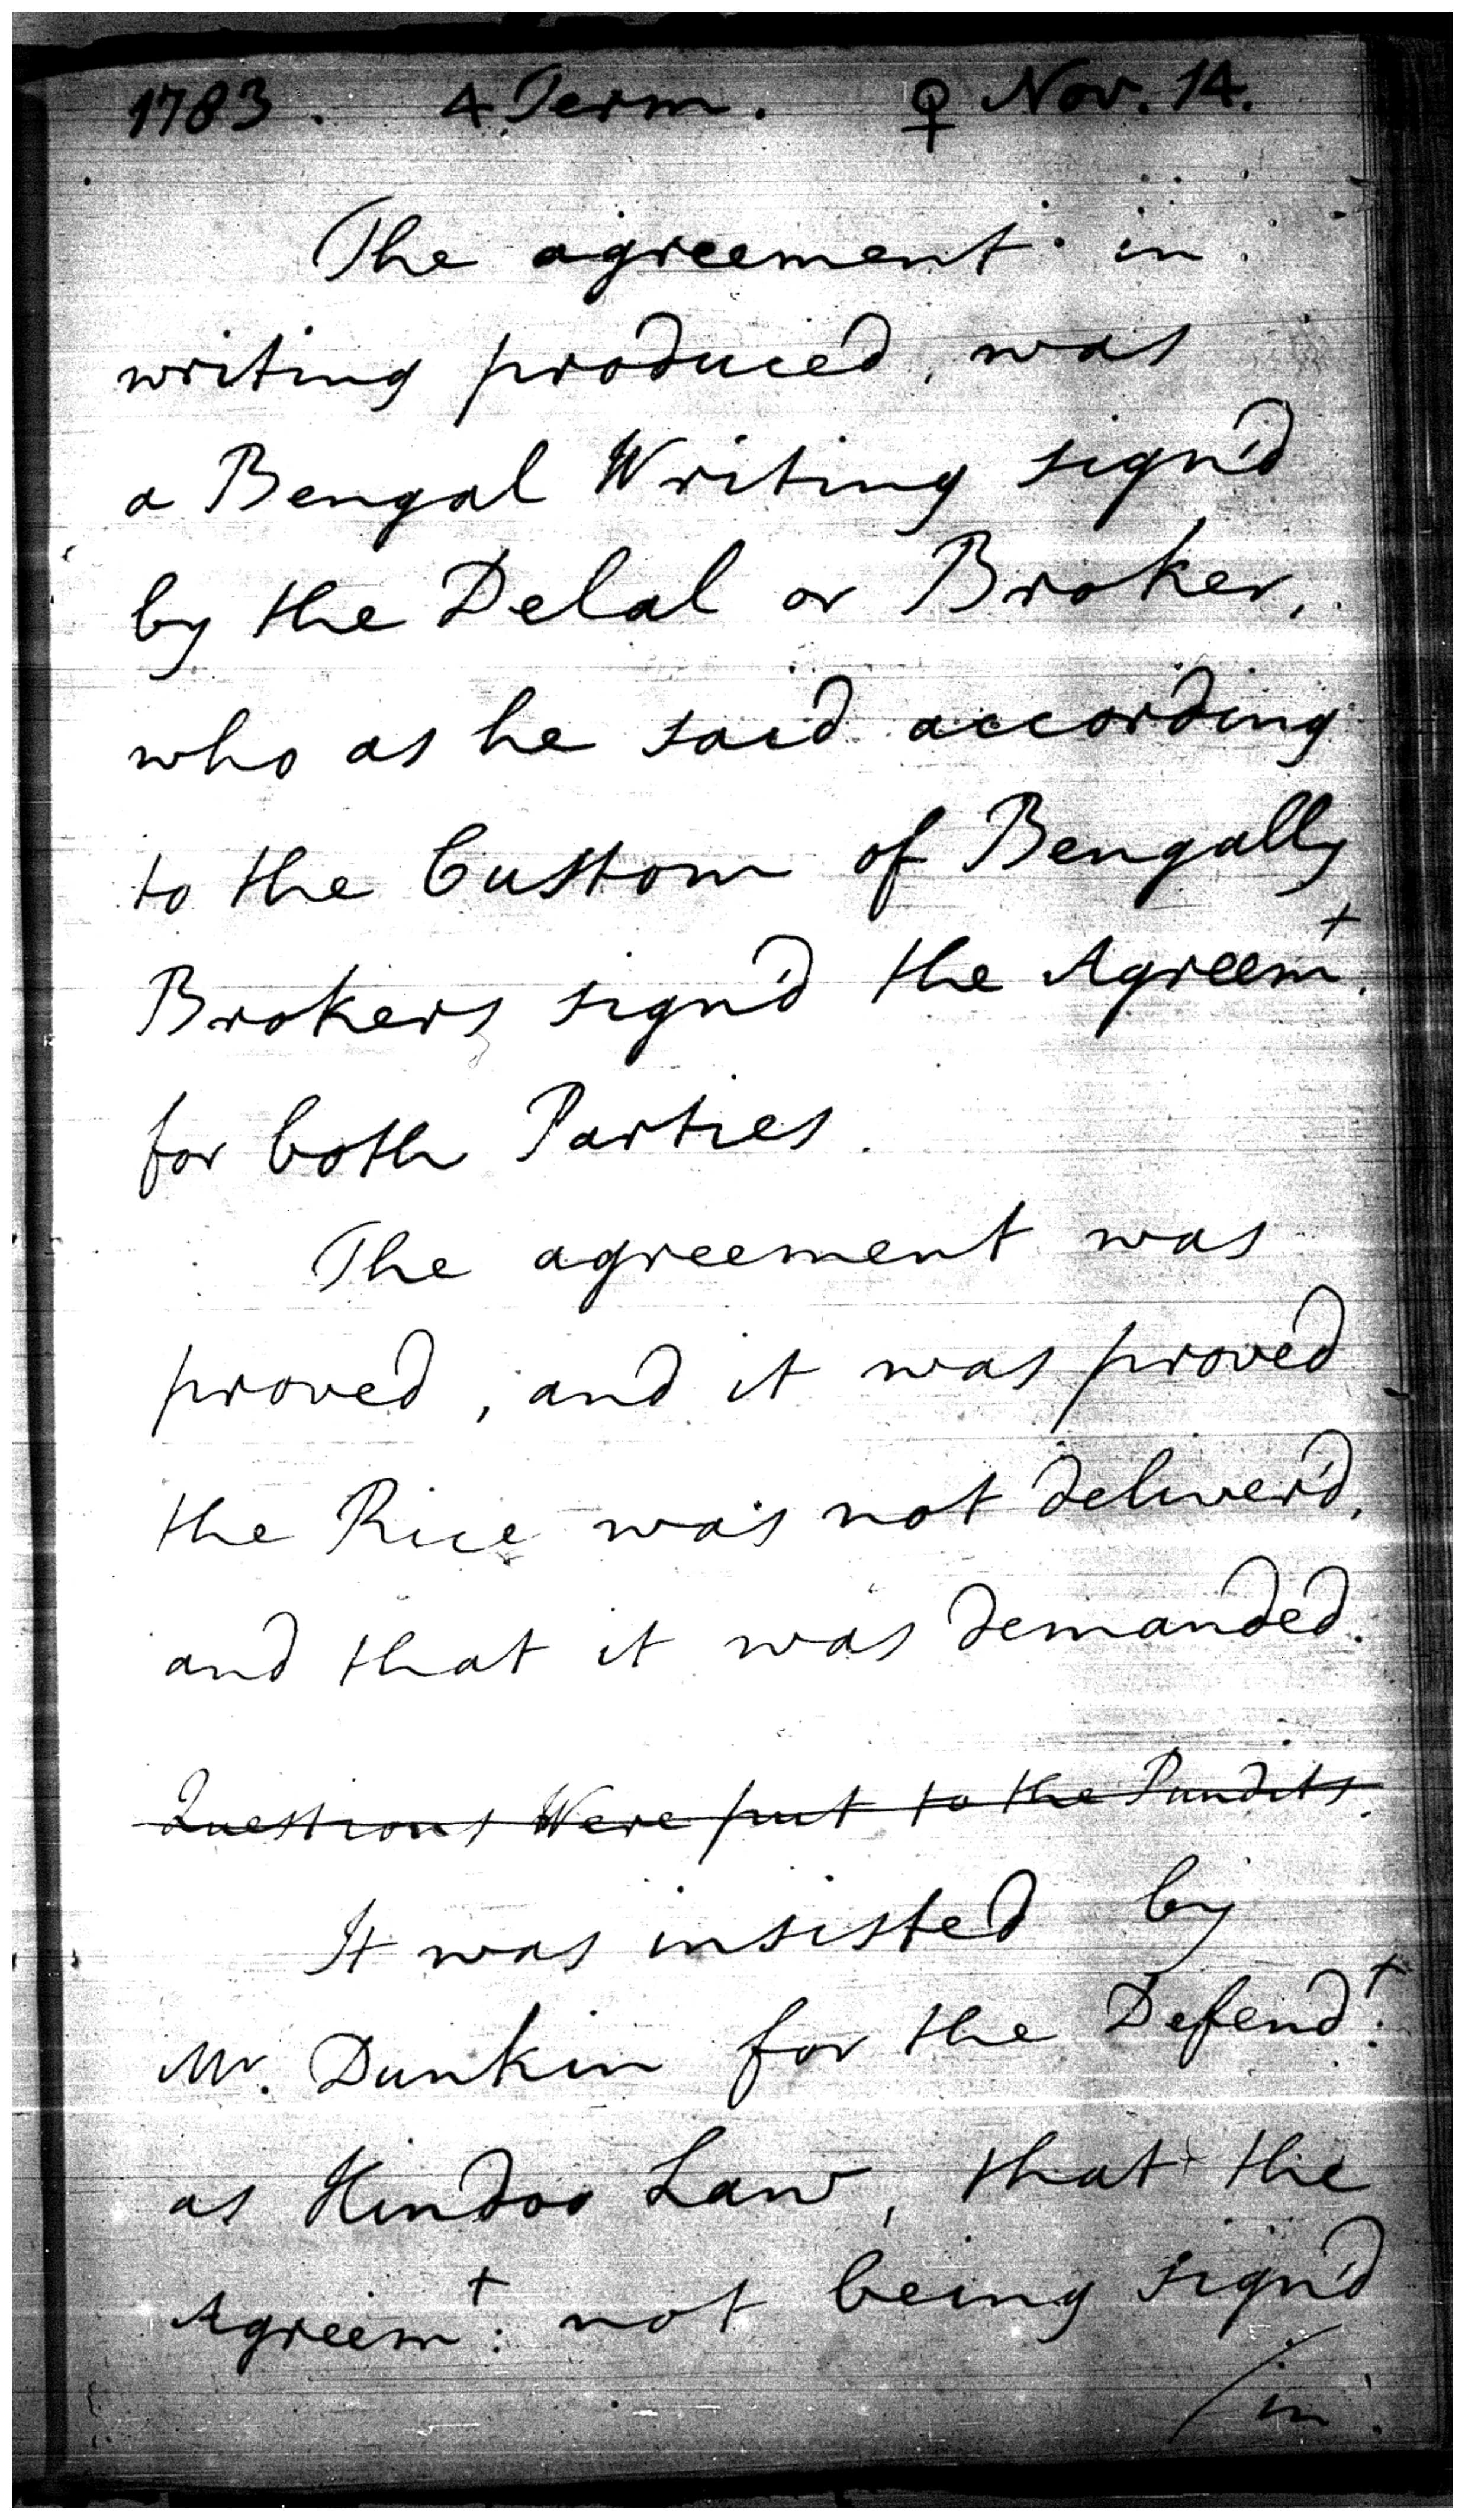 1783. 4 Term. ♀ Nov. 14.
The agreement in
writing produced, was
a Bengal Writing sign'd
by the Delal or Broker,
who as he said according
to the Custom of Bengally
Brokers sign'd the Agreemt.
for both Parties.
The agreement was
proved, and it was proved
the Rice was not deliver'd,
and that it was demanded.
Questions Were put to the Pundits.
It was insisted by
Mr. Dunkin for the Defendt.
as Hindoo Law, that the
Agreemt: not being sign'd
/in